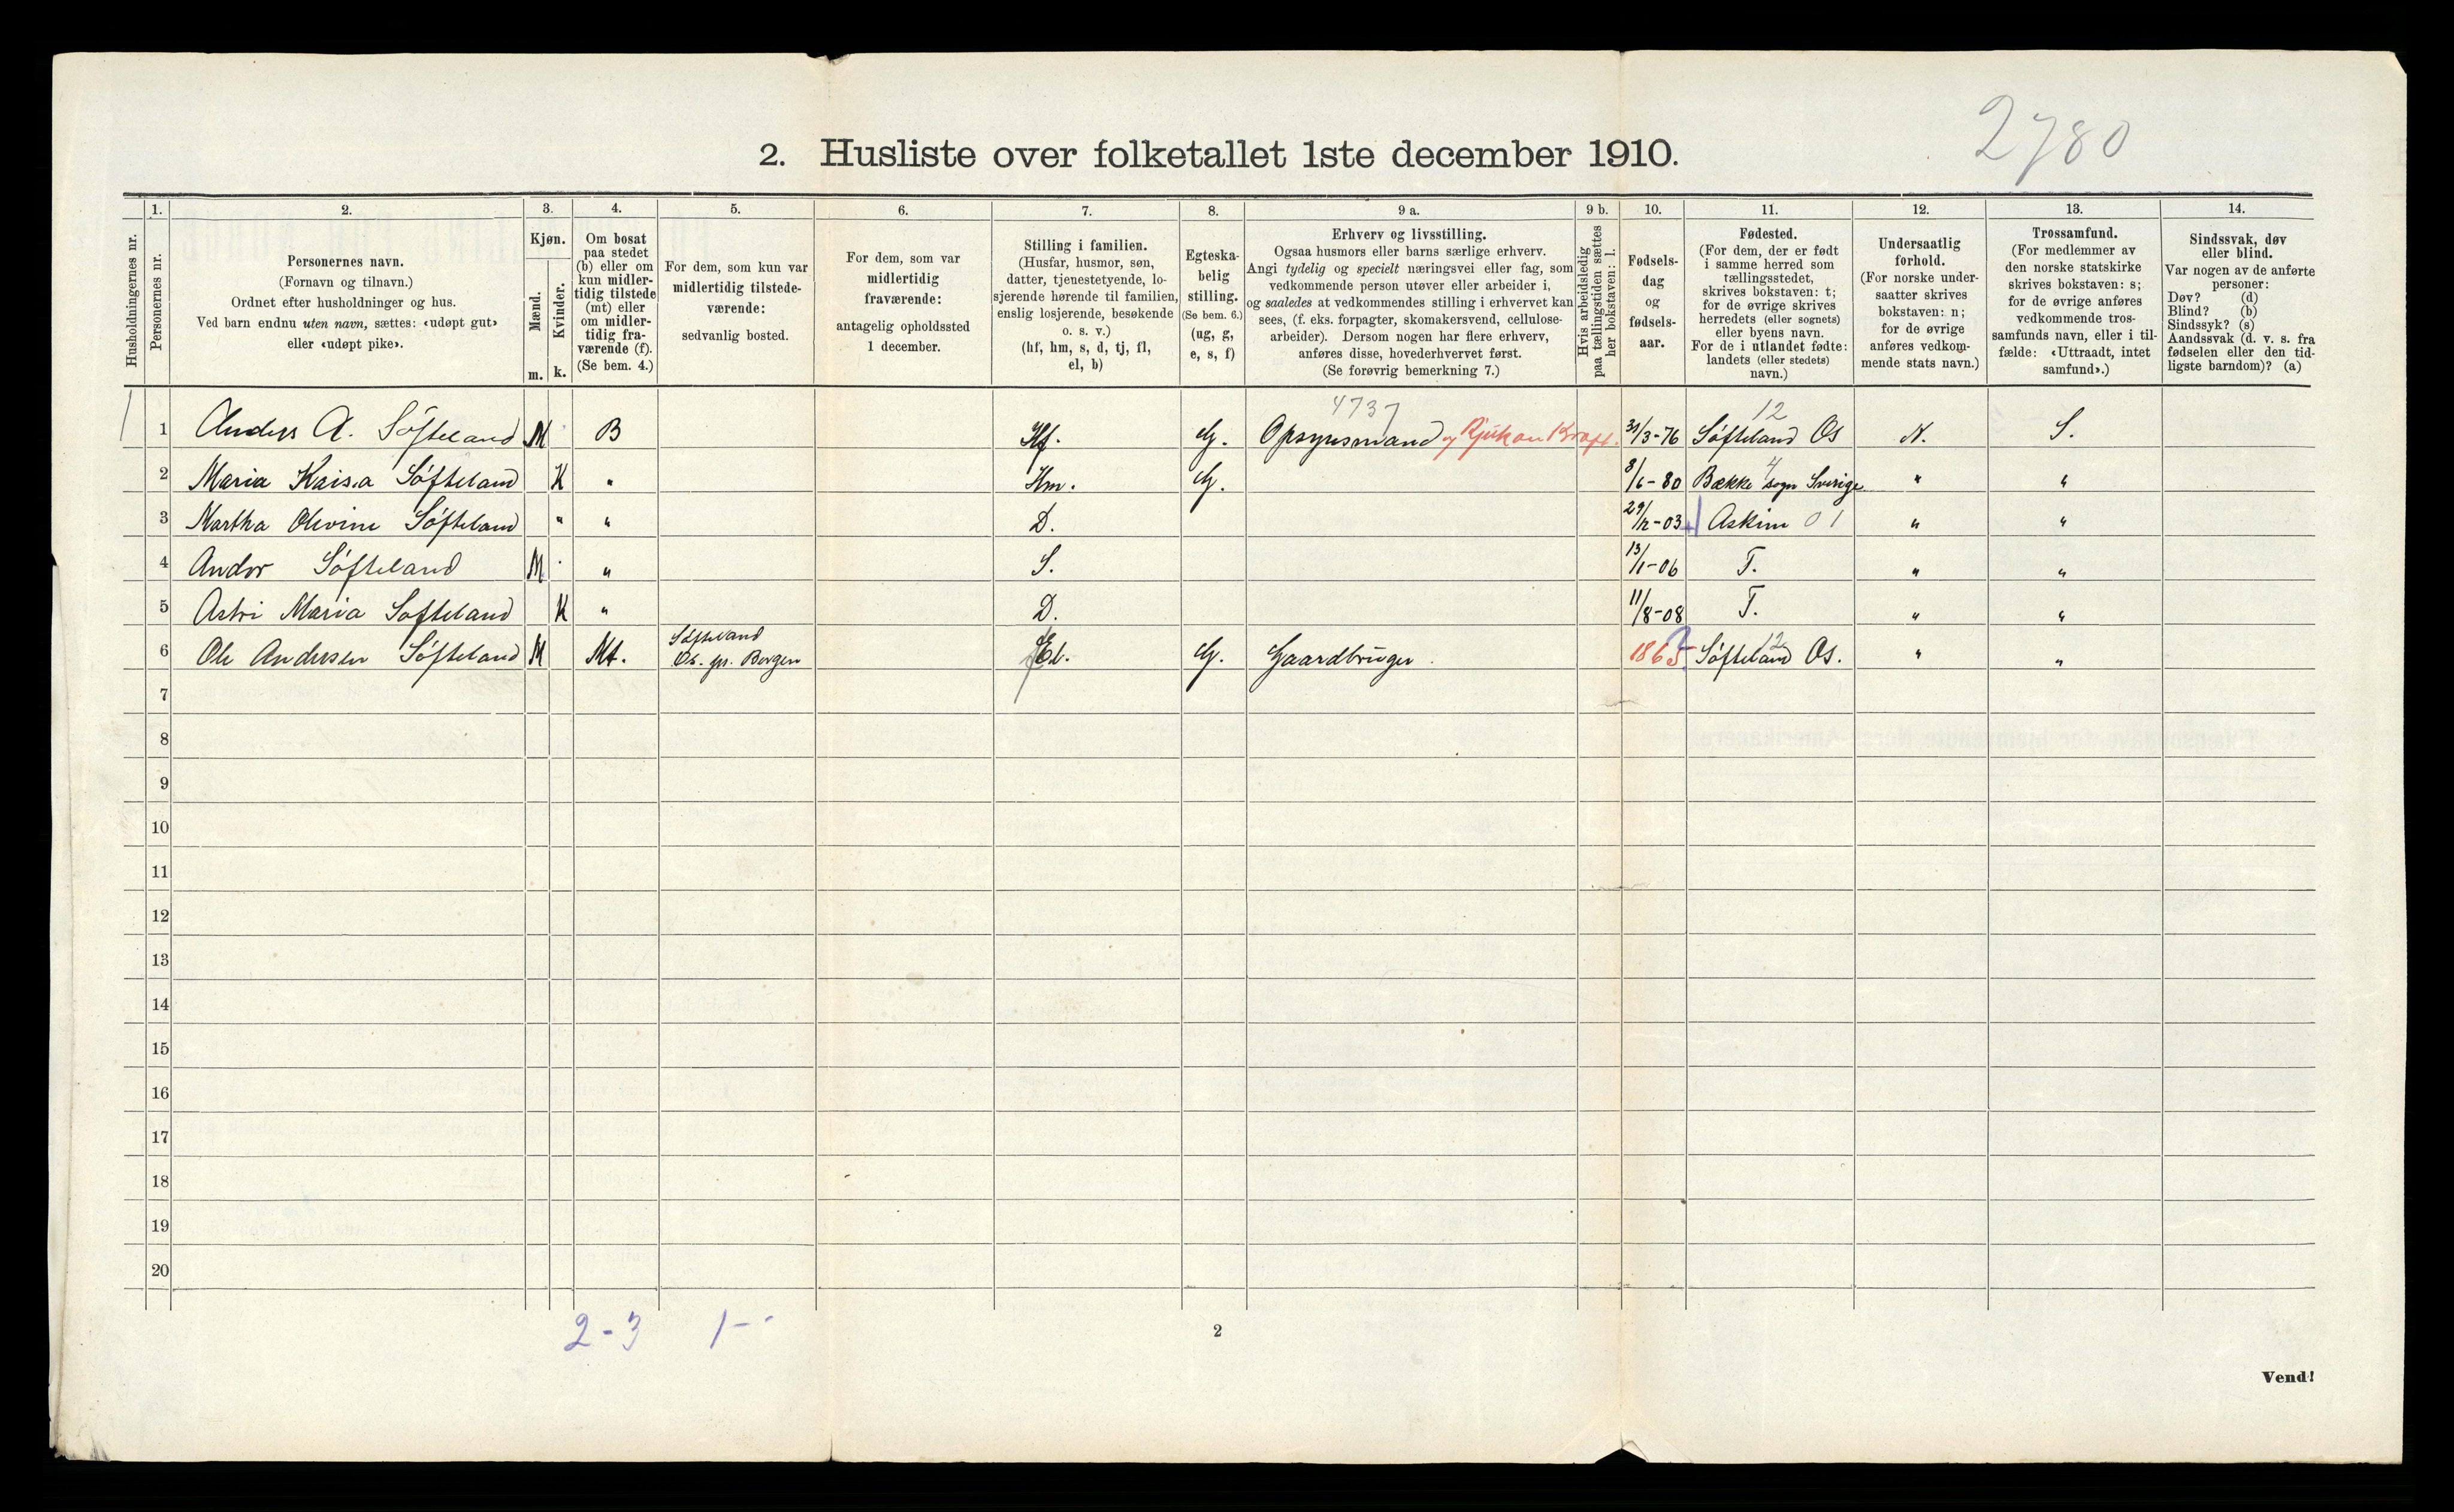 2780
2. Husliste over folketallet 1ste december 1910.
Husholdningernes nr.
1.
Personernes nr.
2.
Personernes navn.
(Fornavn og tilnavn.)
Ordnet efter husholdninger og hus.
Ved barn endnu uten navn, sættes: «udøpt gut»
eller «udøpt pike».
3.
Kjøn.
Mænd.
m.
Kvinder.
k.
4.
Om bosat
paa stedet
(b) eller om
kun midler-
tidig tilstede
(mt) eller
om midler-
tidig fra-
værende (f).
(Se bem. 4.)
5.
For dem, som kun var
midlertidig tilstede-
værende:
sedvanlig bosted.
6.
For dem, som var
midlertidig
fraværende:
antagelig opholdssted
1 december.
7.
Stilling i familien.
(Husfar, husmor, søn,
datter, tjenestetyende, lo-
sjerende hørende til familien,
enslig losjerende, besøkende
o. s. v.)
(hf, hm, s, d, tj, fl,
el, b)
8.
Egteska-
belig
stilling.
(Se bem. 6.)
(ug, g,
e, s, f)
9 a.
Erhverv og livsstilling.
Ogsaa husmors eller barns særlige erhverv.
Angi tydelig og specielt næringsvei eller fag, som
vedkommende person utøver eller arbeider i,
og saaledes at vedkommendes stilling i erhvervet kan
sees, (f. eks. forpagter, skomakersvend, cellulose-
arbeider). Dersom nogen har flere erhverv,
anføres disse, hovederhvervet først.
(Se forøvrig bemerkning 7.)
9 b.
Hvis arbeidsledig
paa tællingstiden sættes
her bokstaven: l.
10.
Fødsels-
dag
og
fødsels-
aar.
11.
Fødested.
(For dem, der er født
i samme herred som
tællingsstedet,
skrives bokstaven: t;
for de øvrige skrives
herredets (eller sognets)
eller byens navn.
For de i utlandet fødte:
landets (eller stedets)
navn.)
12.
Undersaatlig
forhold.
(For norske under-
saatter skrives
bokstaven: n;
for de øvrige
anføres vedkom-
mende stats navn.)
13.
Trossamfund.
(For medlemmer av
den norske statskirke
skrives bokstaven: s;
for de øvrige anføres
vedkommende tros-
samfunds navn, eller i til-
fælde: «Uttraadt, intet
samfund».)
14.
Sindssvak, døv
eller blind.
Var nogen av de anførte
personer:
Døv? (d)
Blind? (b)
Sindssyk? (s)
Aandssvak (d. v. s. fra
fødselen eller den tid-
ligste barndom)? (a)
4737 12
1 1 Anders A. Søfteland M B Hf. G. Opsynsmand Rjukan Kraft. 31/3-76 Søfteland Os N. S.
2 Maria Kaisa Søfteland K " Hm. G. 8/6-80 Bække sogn Sverige 4 " "
3 Martha Olivine Søfteland " " D. 29/12-03 Askim 01 " "
4 Andor Søfteland M " S. 13/1-06 T. " "
5 Astri Maria Søfteland K " D. 11/8-08 T. " "
6 Ole Andersen Søfteland M Mt. Søfteland Os. pr. Bergen El. G. Gaardbruger. 1865 Søfteland Os. 12 " "
7
8
9
10
11
12
13
14
15
16
17
18
19
20
2-3 1--
2
Vend!